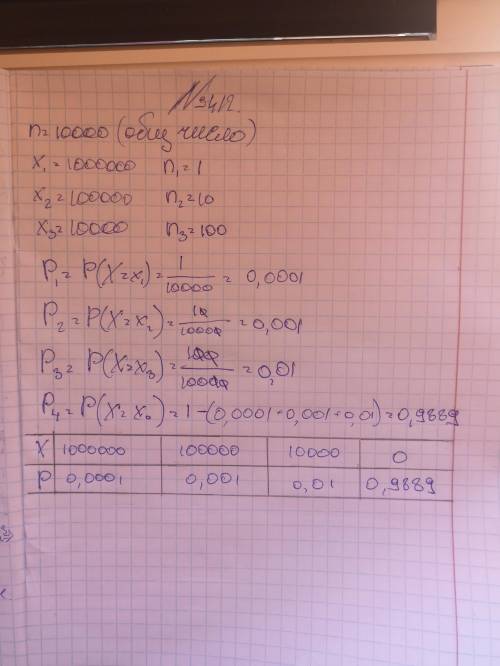 №3412.
n=10000 (общ число)
x₁=1000000 n₁=1
x₂=100000 n₂=10
x₃=10000 n₃=100
P₁= P(X=x₁)=1/10000= 0,0001
P₂= P(X=x₂)=10/10000=0,001
P₃= P(X=x₃)=100/10000=0,01
P₄= P(X=x₀)=1-(0,0001+0,001+0,01)=0,9889
X 1000000 100000 10000 0
P 0,0001 0,001 0,01 0,9889